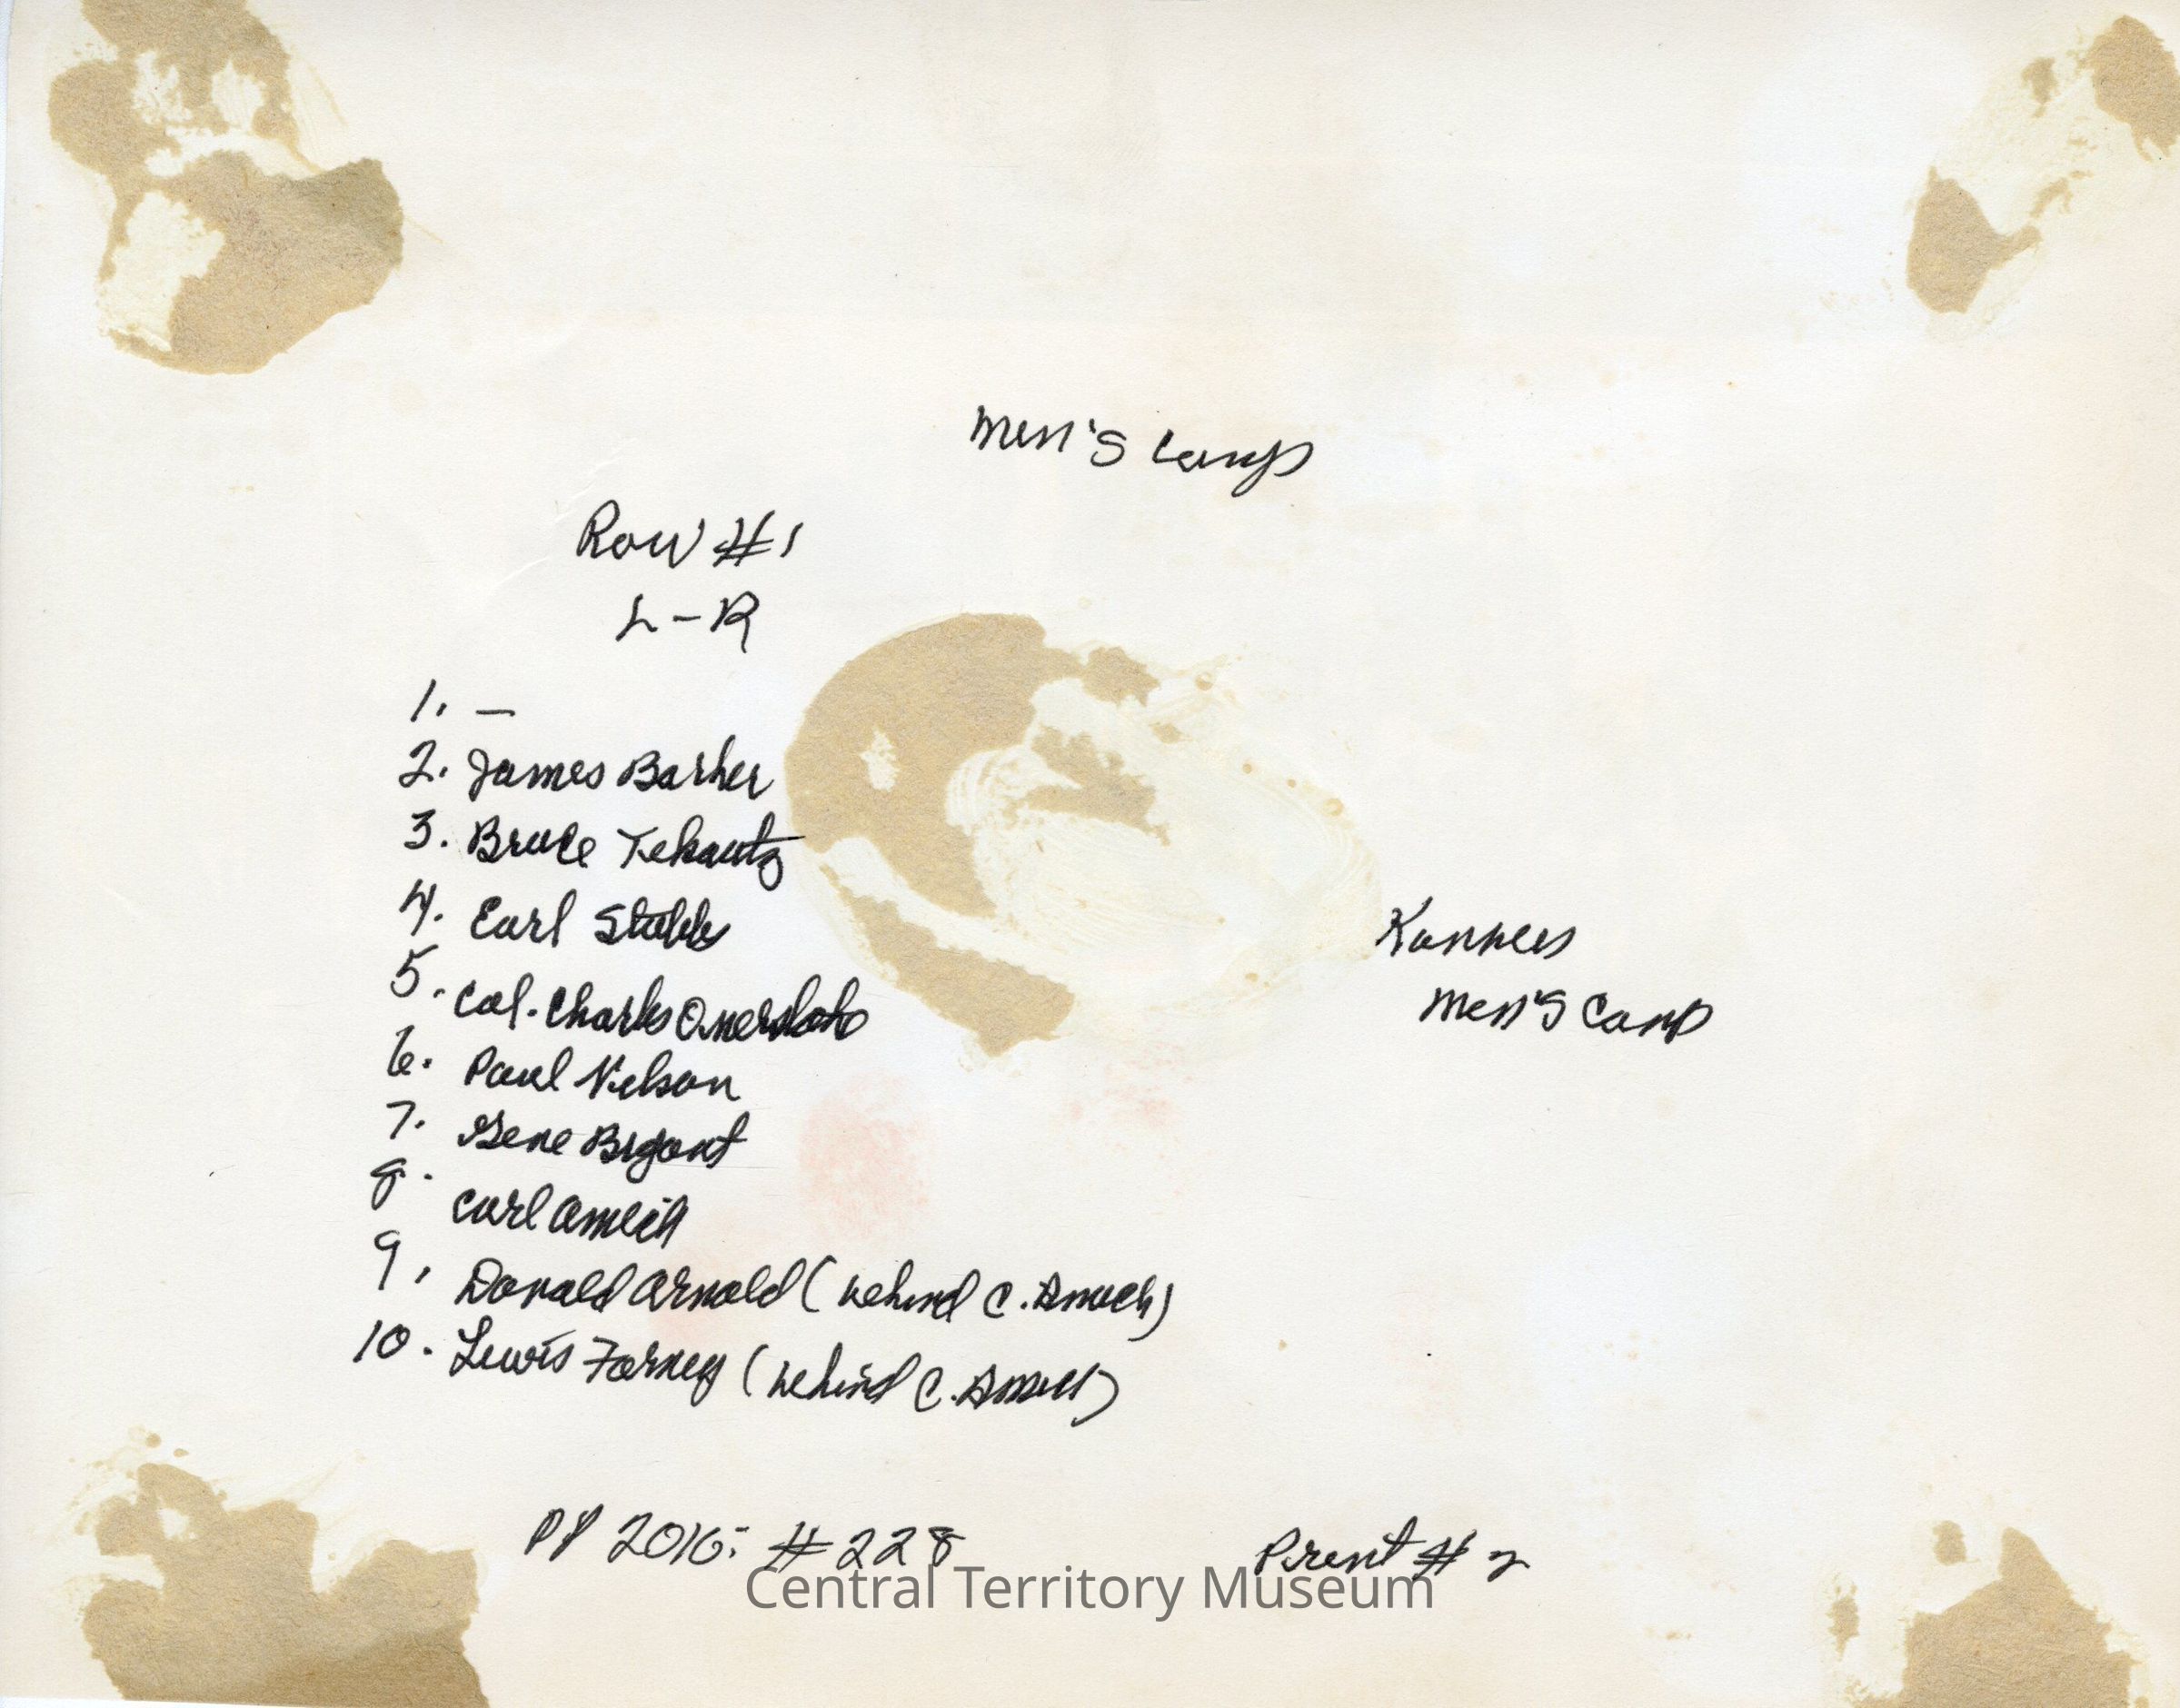 Men's Camp
Row #1
L-R
1. —
2. James Barker
3. Bruce Tekautz
4. Earl
5. Col. Charles
6. Paul Nelson
7. Gene Bryant
8. Carl
9. Donald Arnold (behind C.
10. Lewis Forney (behind C.
Men's Camp
PP 2016: #228
Print #2
Central Territory Museum